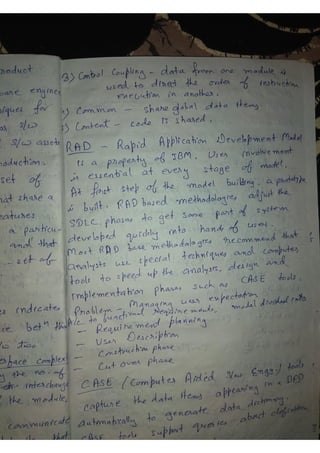 roduct
ware engine
iques for
s/w
s/w assets
oduction.
set of
hit share a
eatures
a particu-
and that
set of
s indicate
ce betn the
rface complex
the no. of
interchange
the module
communicate
that
3) Control Coupling - data from one module is
used to direct the order of instruction
execution in another.
) Common - share global data items
) Content - code is shared.
RAD - Rapid Application Development Model
Is a property of IBM. User involvement
is essential at every stage of model.
At first step of the model building, a prototype
is built. RAD based methodologies adjust the
SDLC phases to get some part of system
developed quickly into hand of users.
Most RAD base methodologies recommend that
analyst use special techniques and computer
tools to speed up the analysis, design and
Implementation phases such as CASE tools.
Problem - Managing user expectation
Acc to functional Requirements, model divided into
- Requirement planning
- User Description
- Construction phase
- Cut over phase
CASE (Computer Aided S/w Engg) tools
Capture the data items appearing in a DFD
automatically to generate data dictionary.
CASE tools support queries about definition